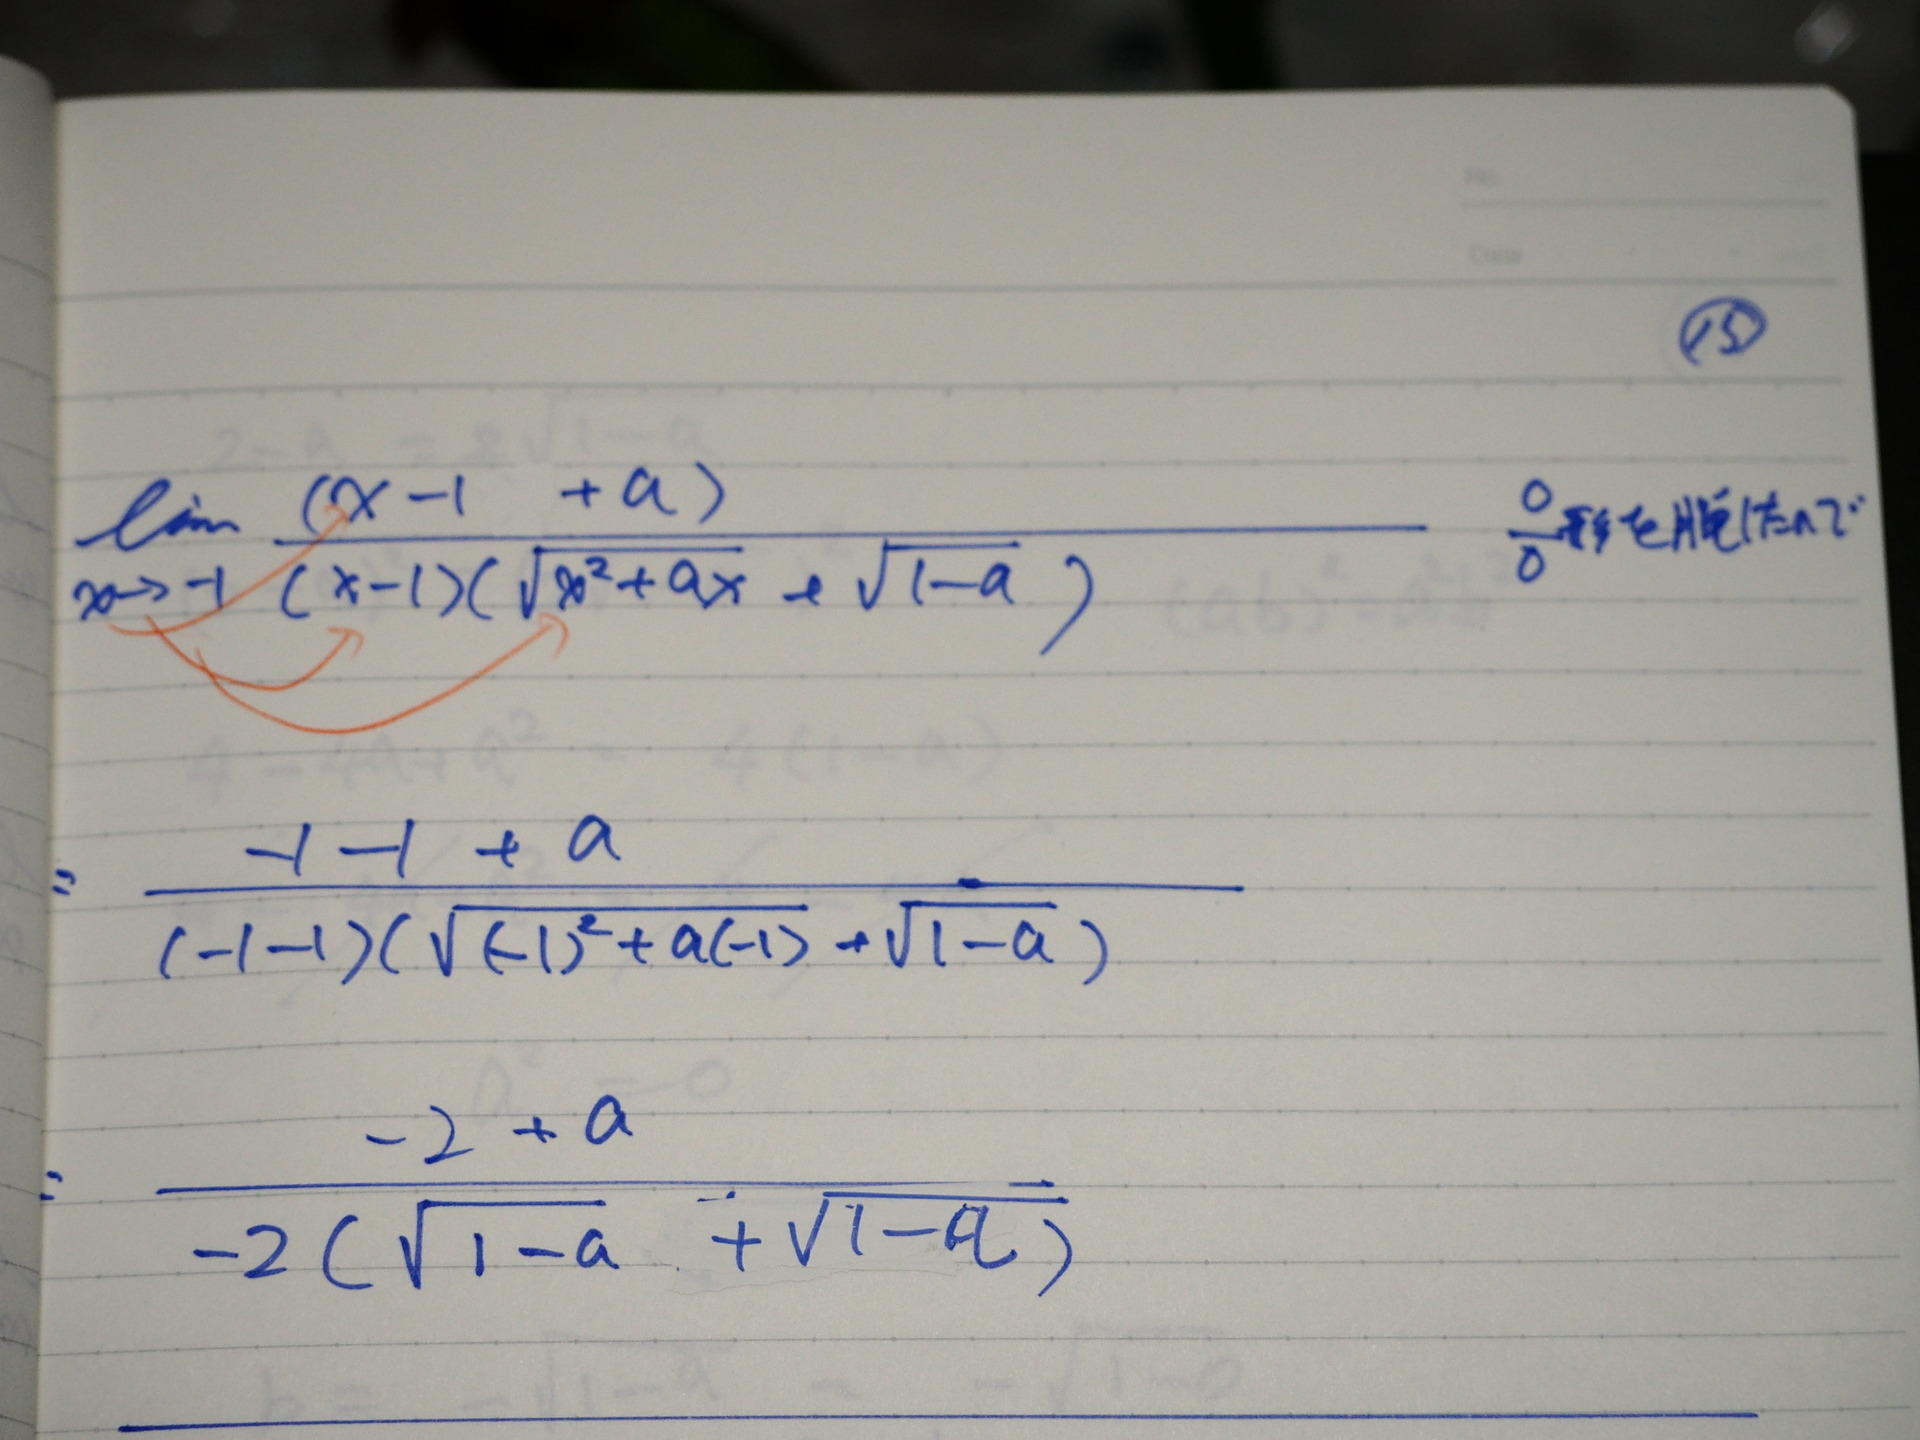 No.
Date
⑮
lim (x-1 +a) / (x-1)(√(x²+ax) + √(1-a)) 0/0形を脱したので
x→-1
= -1-1+a / (-1-1)(√((-1)²+a(-1)) + √(1-a))
= -2+a / -2(√(1-a) + √(1-a))